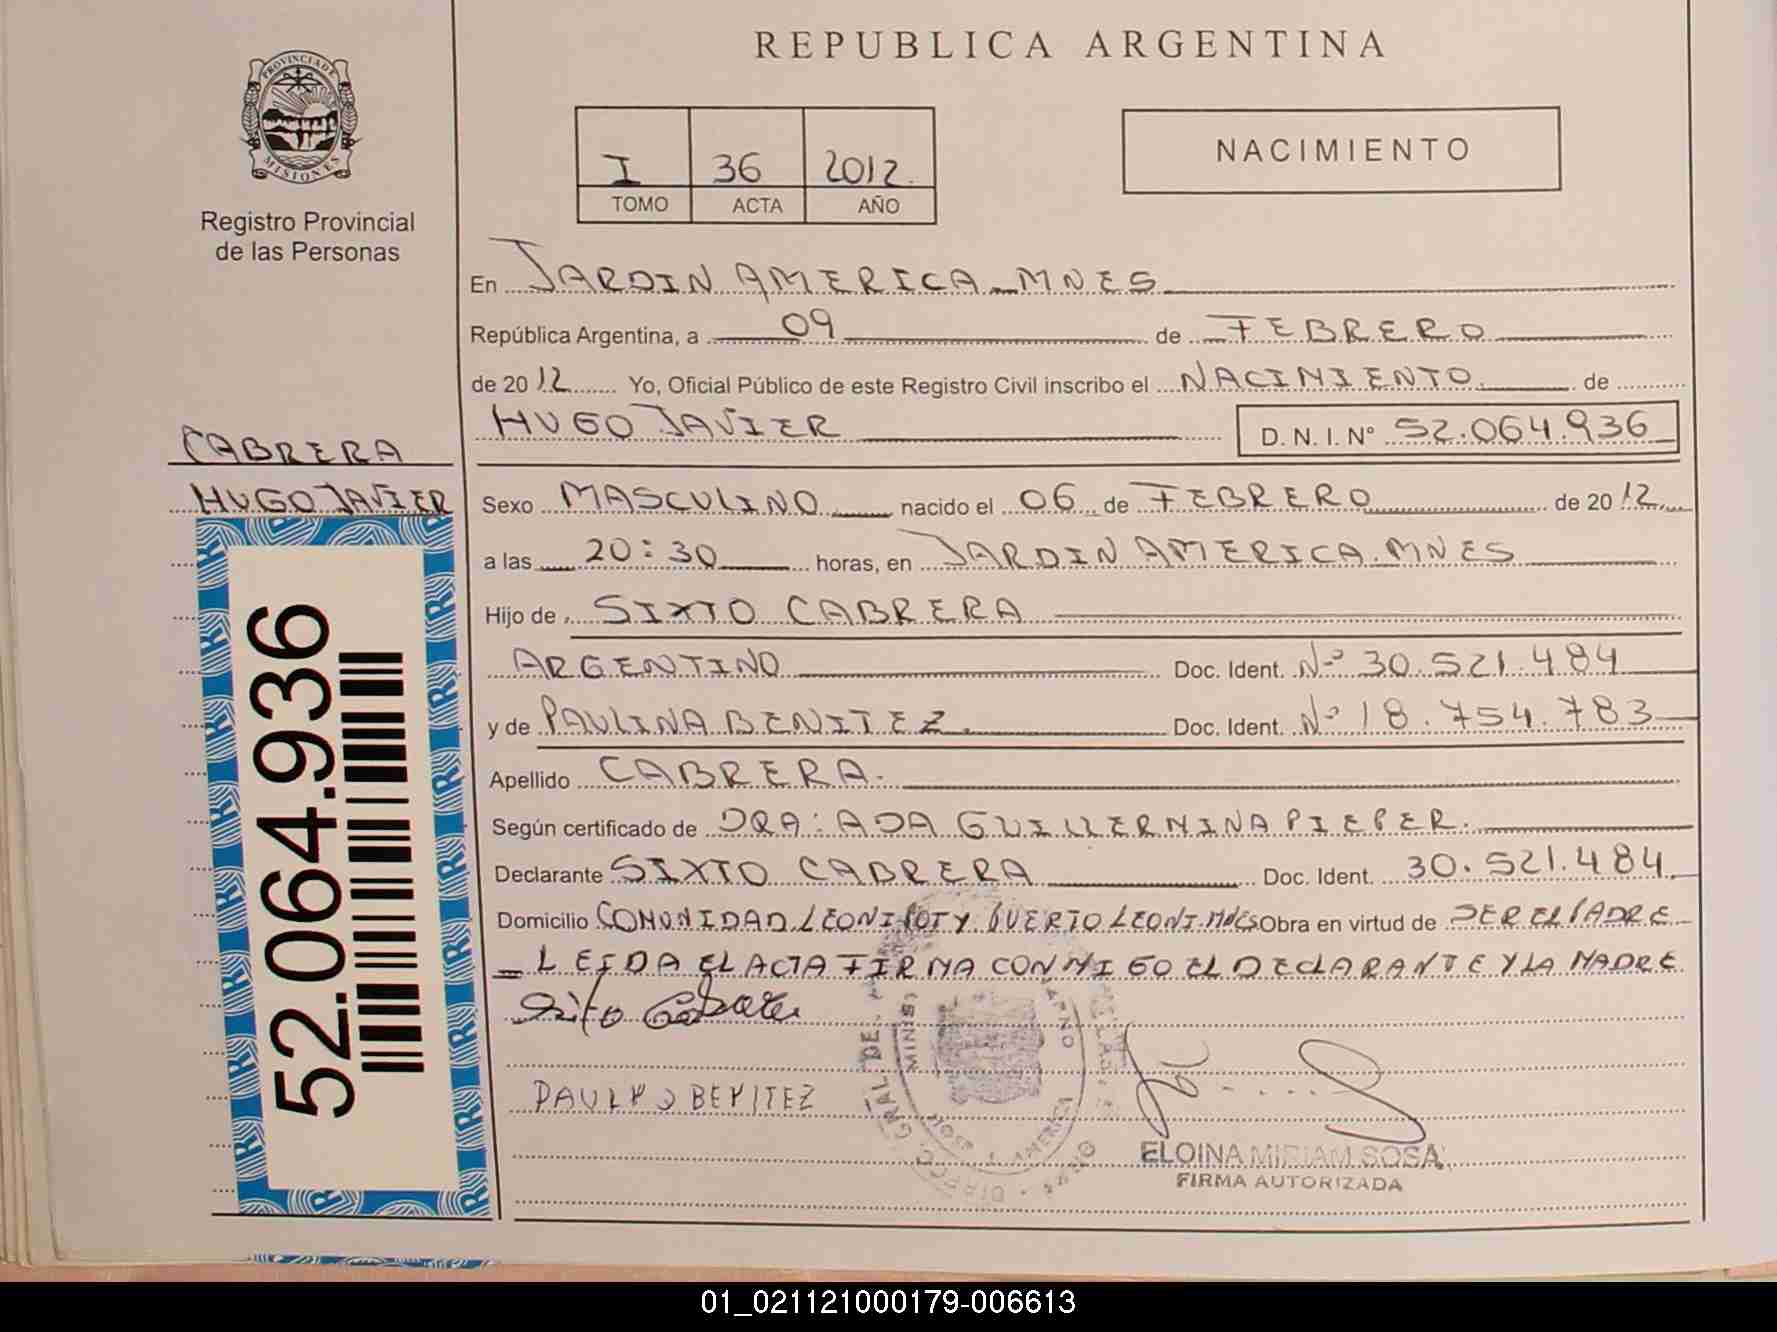 REPUBLICA ARGENTINA
PROVINCIA DE
MISIONES
Registro Provincial
de las Personas
I 36 2012.
TOMO ACTA AÑO
NACIMIENTO
En JARDIN AMERICA - MNES
República Argentina, a 09 de FEBRERO
de 2012 Yo, Oficial Público de este Registro Civil inscribo el NACIMIENTO de
HUGO JAVIER D. N. I. Nº 52.064.936
CABRERA
HUGO JAVIER
Sexo MASCULINO nacido el 06 de FEBRERO de 2012
a las 20:30 horas, en JARDIN AMERICA. MNES
Hijo de SIXTO CABRERA
ARGENTINO Doc. Ident. Nº 30.521.484
y de PAULINA BENITEZ. Doc. Ident. Nº 18.754.783
Apellido CABRERA.
Según certificado de DRA: ADA GUILLERMINA PIEPER.
Declarante SIXTO CABRERA Doc. Ident. 30.521.484
Domicilio COMUNIDAD LEONI POTY PUERTO LEONI. MNES Obra en virtud de SER EL PADRE
LEIDA EL ACTA FIRMA CONMIGO EL DECLARANTE Y LA MADRE
52.064.936
ELOINA MIRIAM SOSA
FIRMA AUTORIZADA
01_021121000179-006613